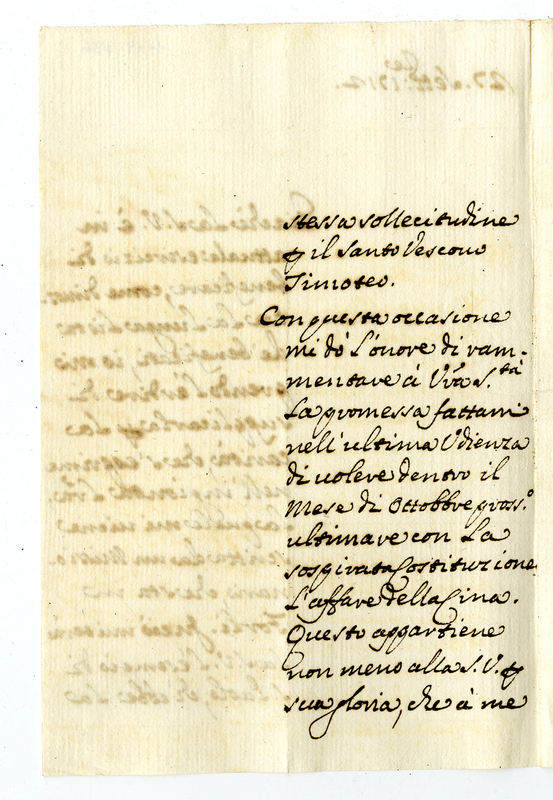 stessa sollecitudine
p il Santo Vescovo
Timoteo.
Con questa occasione
mi dò l'onore di ram-
mentare à Vra S.tà
La promessa fattami
nell'ultima Udienza
di volere dentro il
Mese di Ottobbre pross.o
ultimare con La
sospirata Costituzione
L'affare della Cina.
Questo appartiene
non meno alla S. V. p
sua gloria, che à me